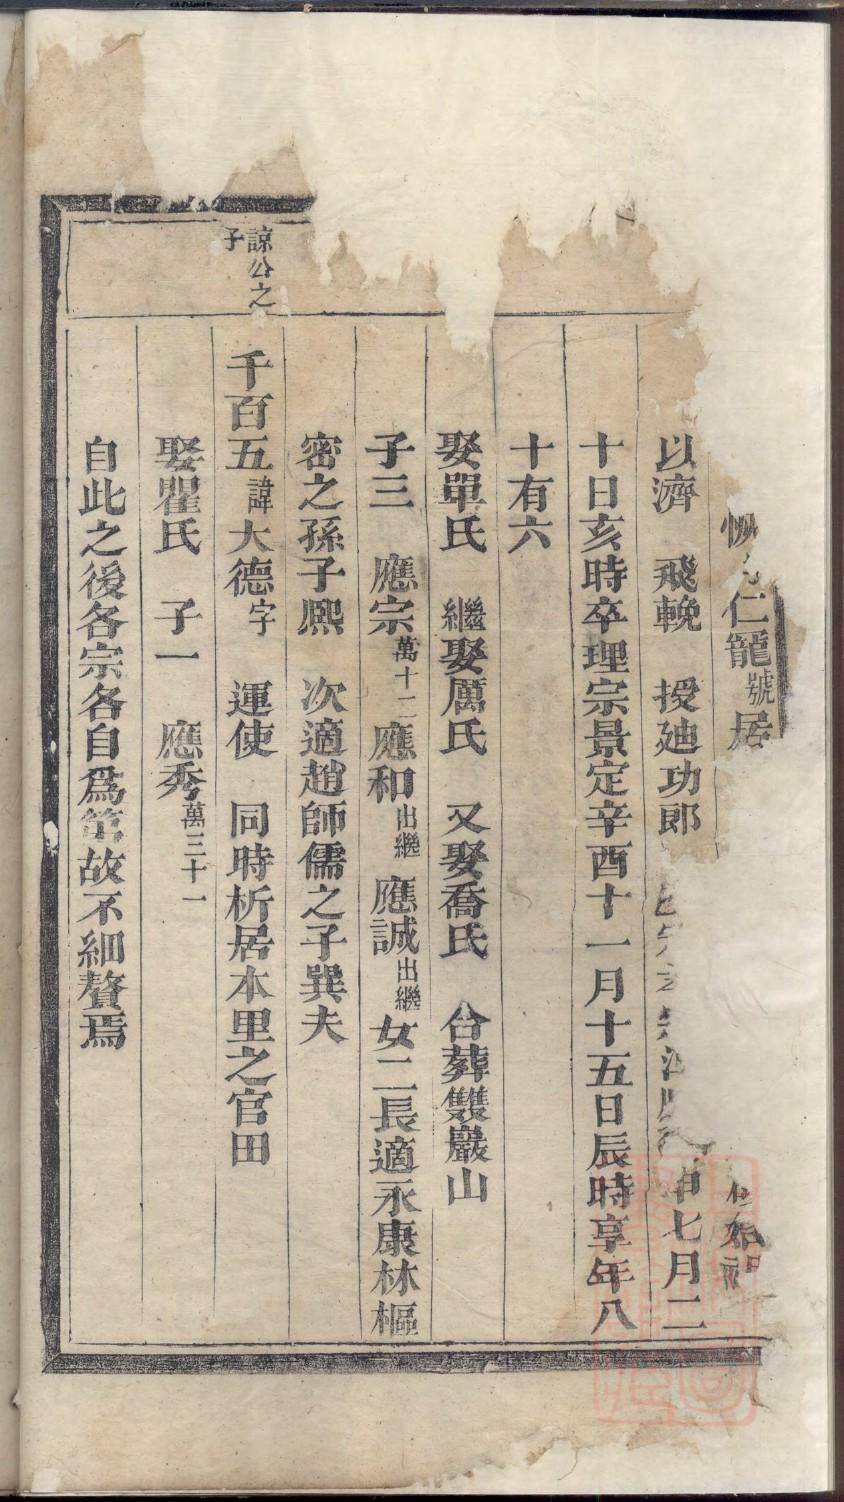 仁龍號居
以濟　飛輓　授迪功郎　七月二
十日亥時卒理宗景定辛酉十一月十五日辰時享年八
十有六
娶單氏　繼娶厲氏　又娶喬氏　合葬雙巖山
子三　應宗萬十二應和出繼　應誠出繼女二長適永康林樞
密之孫子熙　次適趙師儒之子巽夫
諒公之子
千百五諱大德字　運使　同時析居本里之官田
娶瞿氏　子一　應秀萬三十一
自此之後各宗各自爲第故不細贅焉